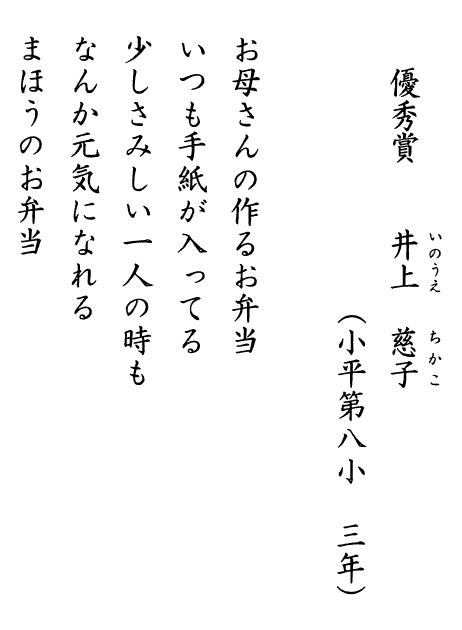 優秀賞　井上　慈子
いのうえ　ちかこ
（小平第八小　三年）
お母さんの作るお弁当
いつも手紙が入ってる
少しさみしい一人の時も
なんか元気になれる
まほうのお弁当